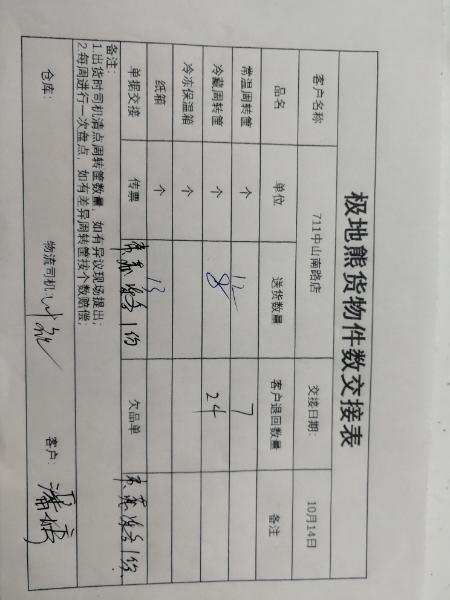 极地熊货物件数交接表
客户名称 711中山南路店 交接日期: 10月14日
品名 单位 送货数量 客户退回数量 备注
常温周转筐 个 7
冷藏周转筐 个 24
冷冻保温箱 个
纸箱 个 13
单据交接 传票 1份 欠品单 1份
备注:
1.出货时司机清点周转筐数量，如有异议现场提出;
2.每周进行一次盘点，如有差异周转筐按个数赔偿;
仓库: 物流司机: 客户: